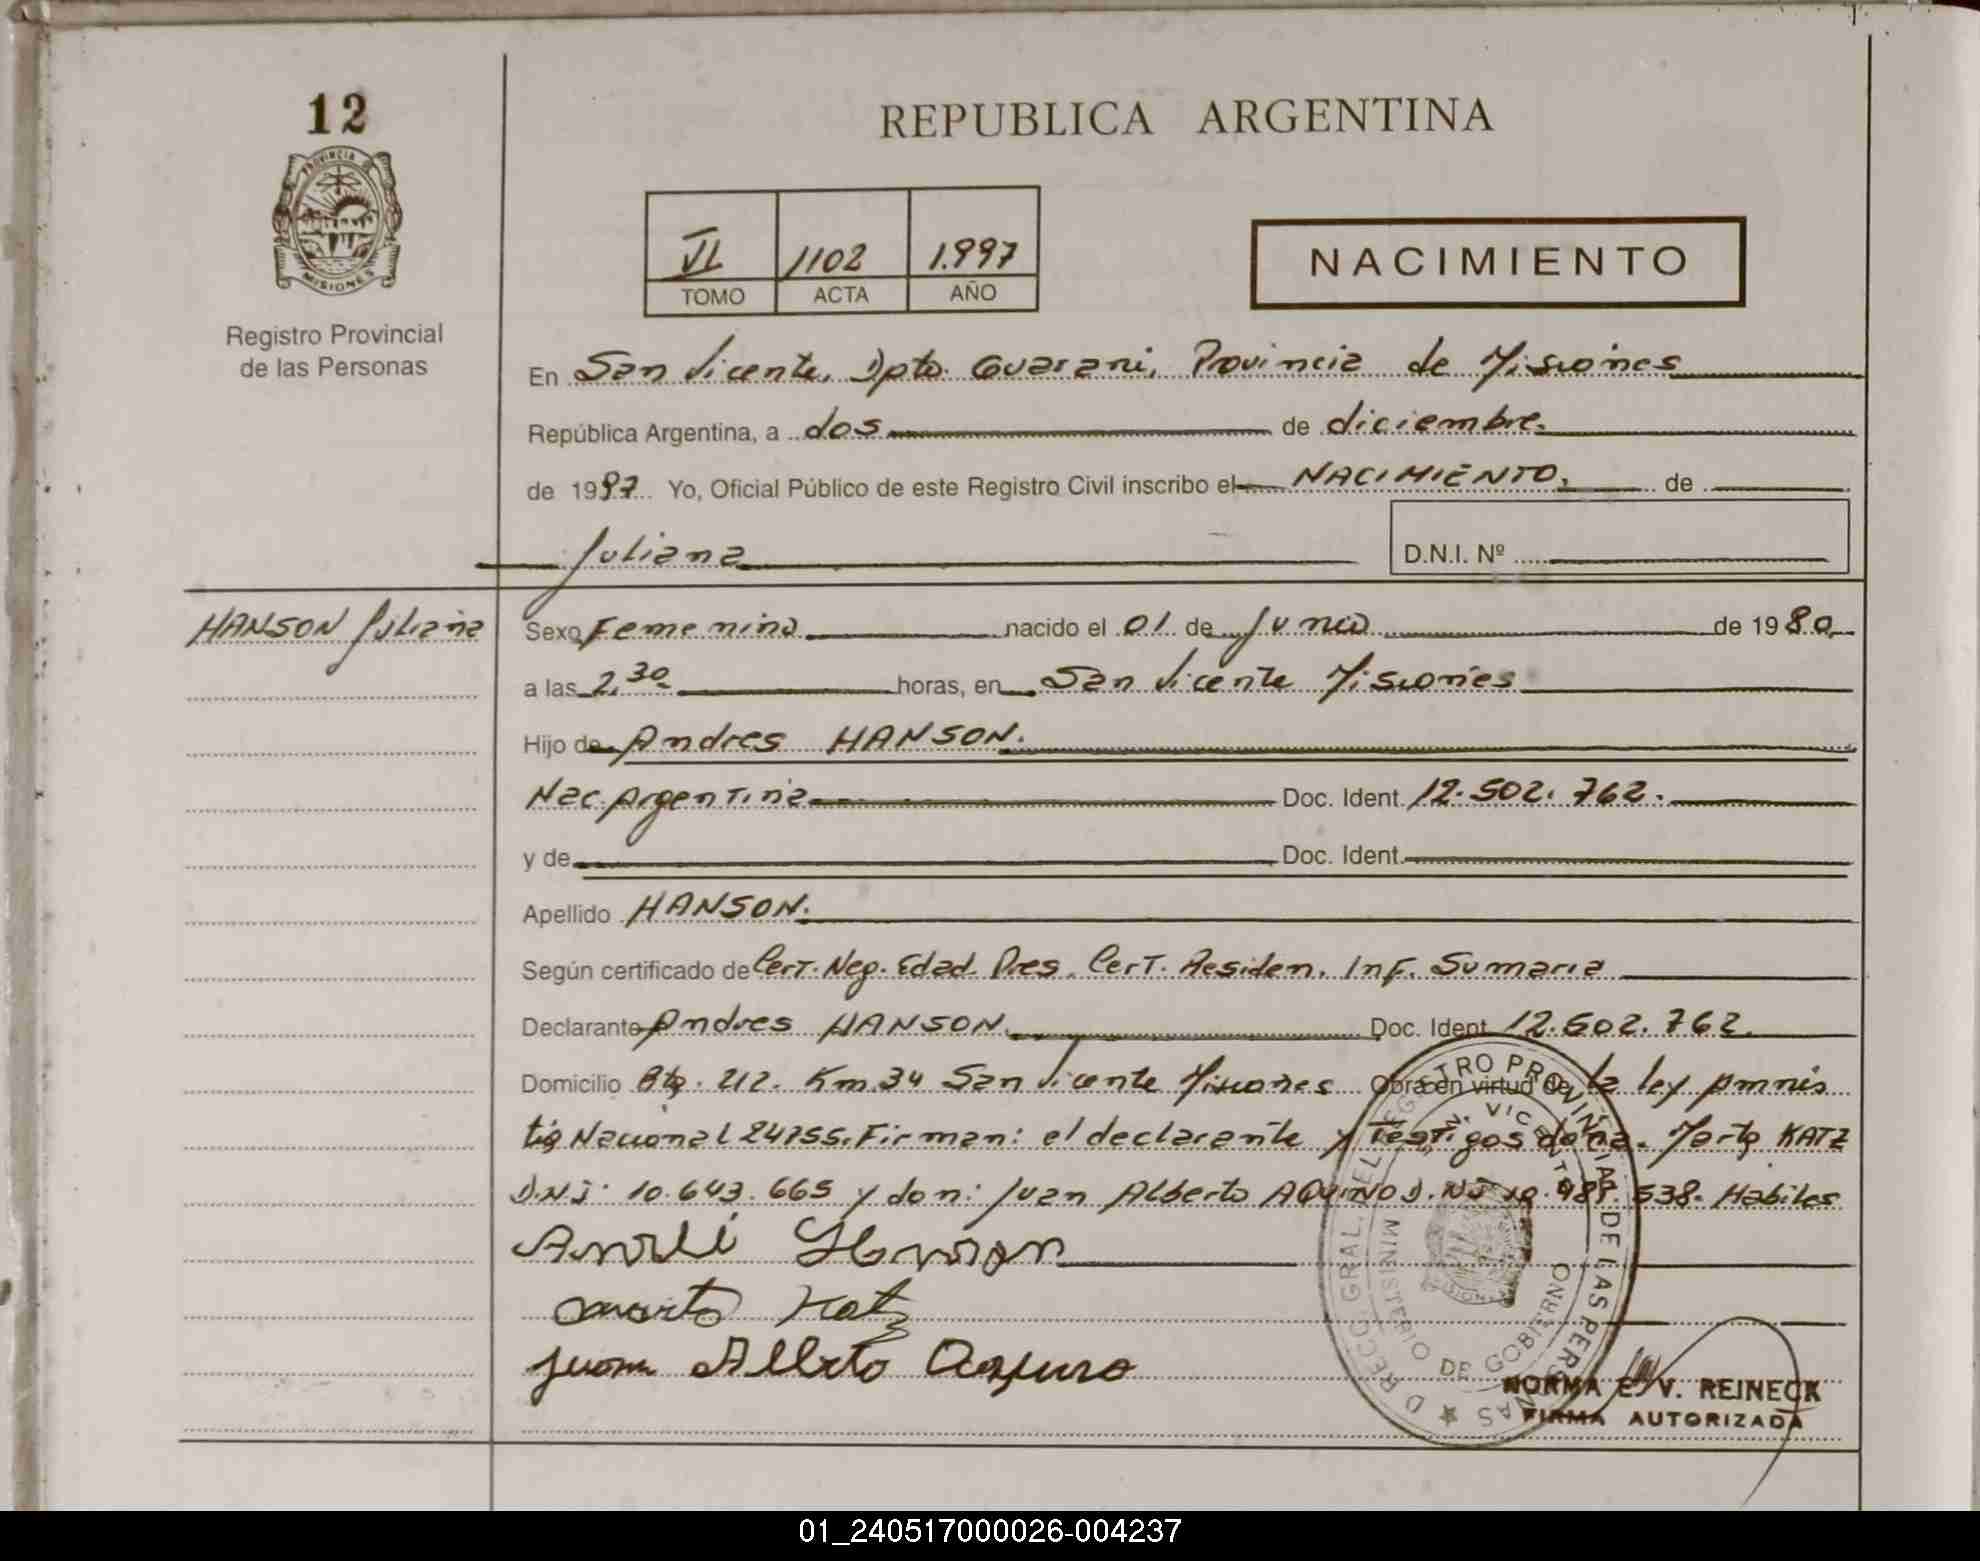 12
REPUBLICA ARGENTINA
PROVINCIA DE
MISIONES
VI 1102 1.997
TOMO ACTA AÑO
NACIMIENTO
Registro Provincial
de las Personas
En San Vicente, Dpto. Guarani, Provincia de Misiones
República Argentina, a dos de diciembre.
de 1997 Yo, Oficial Público de este Registro Civil inscribo el NACIMIENTO, de
Juliana D.N.I. Nº
HANSON Juliana
Sexo Femenino nacido el 01 de Junio de 1980
a las 2,30 horas, en San Vicente Misiones
Hijo de Andres HANSON.
Nac. Argentina Doc. Ident. 12.502.762.
y de Doc. Ident.
Apellido HANSON.
Según certificado de Cert. Neg. Edad Pres. Cert. Residen. Inf. Sumaria
Declarante Andres HANSON. Doc. Ident. 12.502.762.
Domicilio 212. Km 34 San Vicente Misiones Obra en virtud de la ley Amnis
tia Nacional 24755. Firman: el declarante y testigos doña. Marta KATZ
D.N.I. 10.643.665 y don: Juan Alberto AQUINO D.N.I 538. Habiles
Hanson
Marta Katz
Juan Alberto Aquino
DIRECC. GRAL. DEL REGISTRO PROVINCIAL DE LAS PERSONAS
MINISTERIO DE GOBIERNO
NORMA E. V. REINECK
FIRMA AUTORIZADA
01_240517000026-004237